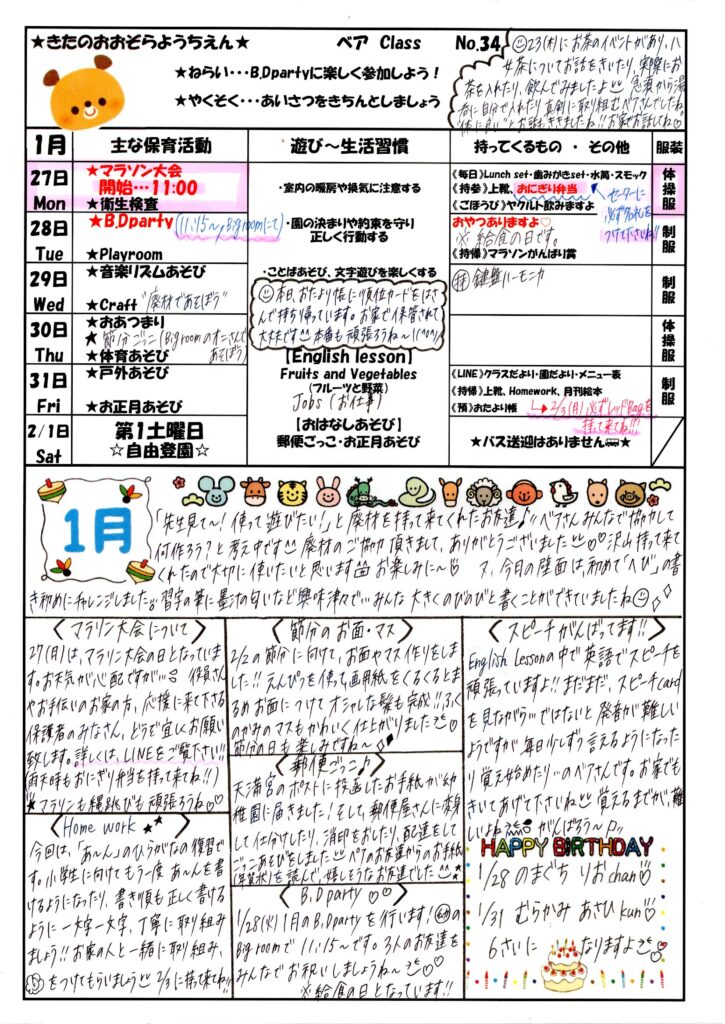 ★きたのおおぞらようちえん★
ベア Class
No.34
★ねらい・・・B,Dpartyに楽しく参加しよう！
★やくそく・・・あいさつをきちんとしましょう
23(木)にお茶のイベントがあり、八
女茶についてお話をきいたり、実際にお
茶を入れたり、飲んでみましたよ 急須から湯
呑に自分で入れたり真剣に取り組むベアさんでしたね。
お話もききましたね!!お家でお話してね♡
1月
主な保育活動
遊び～生活習慣
持ってくるもの ・ その他
服装
27日
Mon
★マラソン大会
開始…11:00
★衛生検査
・室内の暖房や換気に注意する
《毎日》Lunch set・歯みがきset・水筒・スモック
《持参》上靴、おにぎり弁当
《ごほうび》ヤクルト飲みますよ
セーターに
必ず名札を
つけて下さいね!!
体操服
28日
Tue
★B,Dparty (11:15～, Big roomにて)
★Playroom
・園の決まりや約束を守り
正しく行動する
おやつありますよ♡
※給食の日です。
《持帰》マラソンがんばり賞
制服
29日
Wed
★音楽リズムあそび
★Craft "廃材であそぼう"
・ことばあそび、文字遊びを楽しくする
持 鍵盤ハーモニカ
制服
本日、おたより帳に順位カードをはさ
んで持ち帰っています。お家で保管されて
大丈夫です 本番も頑張ろうね～!
30日
Thu
★おあつまり
★節分ごっこ(Big roomのオニさんで
あそぼう)
★体育あそび
【English lesson】
Fruits and Vegetables
(フルーツと野菜)
Jobs (お仕事)
体操服
31日
Fri
★戸外あそび
★お正月あそび
【おはなしあそび】
郵便ごっこ・お正月あそび
《LINE》クラスだより・園だより・メニュー表
《持帰》上靴、Homework、月刊絵本
《預》おたより帳
2/3(月)必ずレッドBagを
持って来てね!!!
制服
2/1日
Sat
第1土曜日
☆自由登園☆
★バス送迎はありません★
1月
「先生見て～!使って遊びたい!」と廃材を持って来てくれたお友達♪ベアさんみんなで協力して
何作ろう?と考え中です 廃材のご協力頂きまして、ありがとうございました♡♡沢山持って来て
くれたので大切に使いたいと思います お楽しみに～♡ 又、今月の壁面は、初めて「へび」の書
き初めにチャレンジしました。習字の筆に墨汁の匂いなど興味津々で…みんな大きくのびのびと書くことができていましたね
〈マラソン大会について〉
27(月)は、マラソン大会の日となっていま
す。お天気が心配ですが… 役員さん
やお手伝いのお家の方、応援に来て下さる
保護者のみなさん、どうぞ宜しくお願い
致します。詳しくは、LINEをご覧下さい!!
(雨天時もおにぎり弁当を持って来てね!!)
★マラソンも縄跳びも頑張ろうね♡♡
〈Home work★★〉
今回は、「あ～ん」のひらがなの復習で
す。小学生に向けてもう一度 あ～んを書
けるようになったり、書き順も正しく書ける
ように一文字一文字、丁寧に取り組み
ましょう!!お家の人と一緒に取り組み、
をつけてもらいましょう 2/3に持って来てね!!
〈節分のお面・マス〉
2/2の節分に向けて、お面やマス作りをしま
した!!えんぴつを使って画用紙をくるくるとま
るめお面につけてオシャレな髪も完成!!ふく
のかみのマスもかわいく仕上がりました
節分の日も楽しみですね～
〈郵便ごっこ♪〉
天満宮のポストに投函したお手紙が幼
稚園に届きました!そして、郵便屋さんに変身
して仕分けしたり、消印をおしたり、配達をして
ごっこあそびをしました ペアのお友達からのお手紙
(年賀状)を読んで、嬉しそうなお友達でした
〈B.D party♡♡〉
1/28(火)1月のB.D partyを行います!幼の
Big roomで11:15～です。3人のお友達を
みんなでお祝いしましょうね～♡
※給食の日となっています!!
〈スピーチがんばってます!!〉
English Lessonの中で英語でスピーチを
頑張っていますよ!!まだまだ、スピーチcard
を見ながら…ではないと発音が難しい
ようですが毎日少しずつ言えるようになった
り覚え始めたり…のベアさんです。お家でも
きいてあげて下さいね 覚えるまでが、難
しいよね がんばろう～
HAPPY BIRTHDAY
1/28 のまぐち りおchan♡
1/31 むらかみ あさひkun♡
6さいに なりますよ